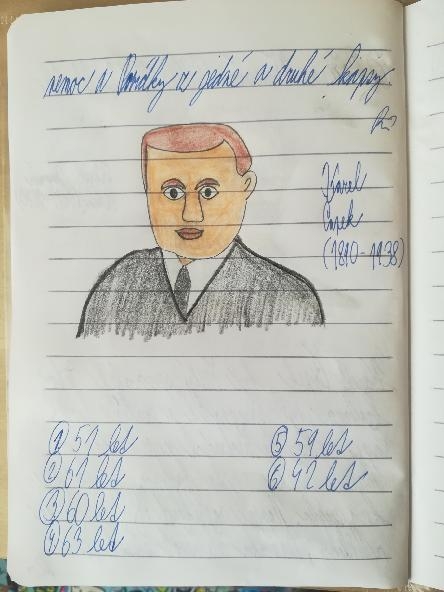 nemoc a Povídky z jedné a druhé kapsy
Karel
Čapek
(1890-1938)
① 51 let
② 61 let
③ 60 let
④ 63 let
⑤ 59 let
⑥ 42 let